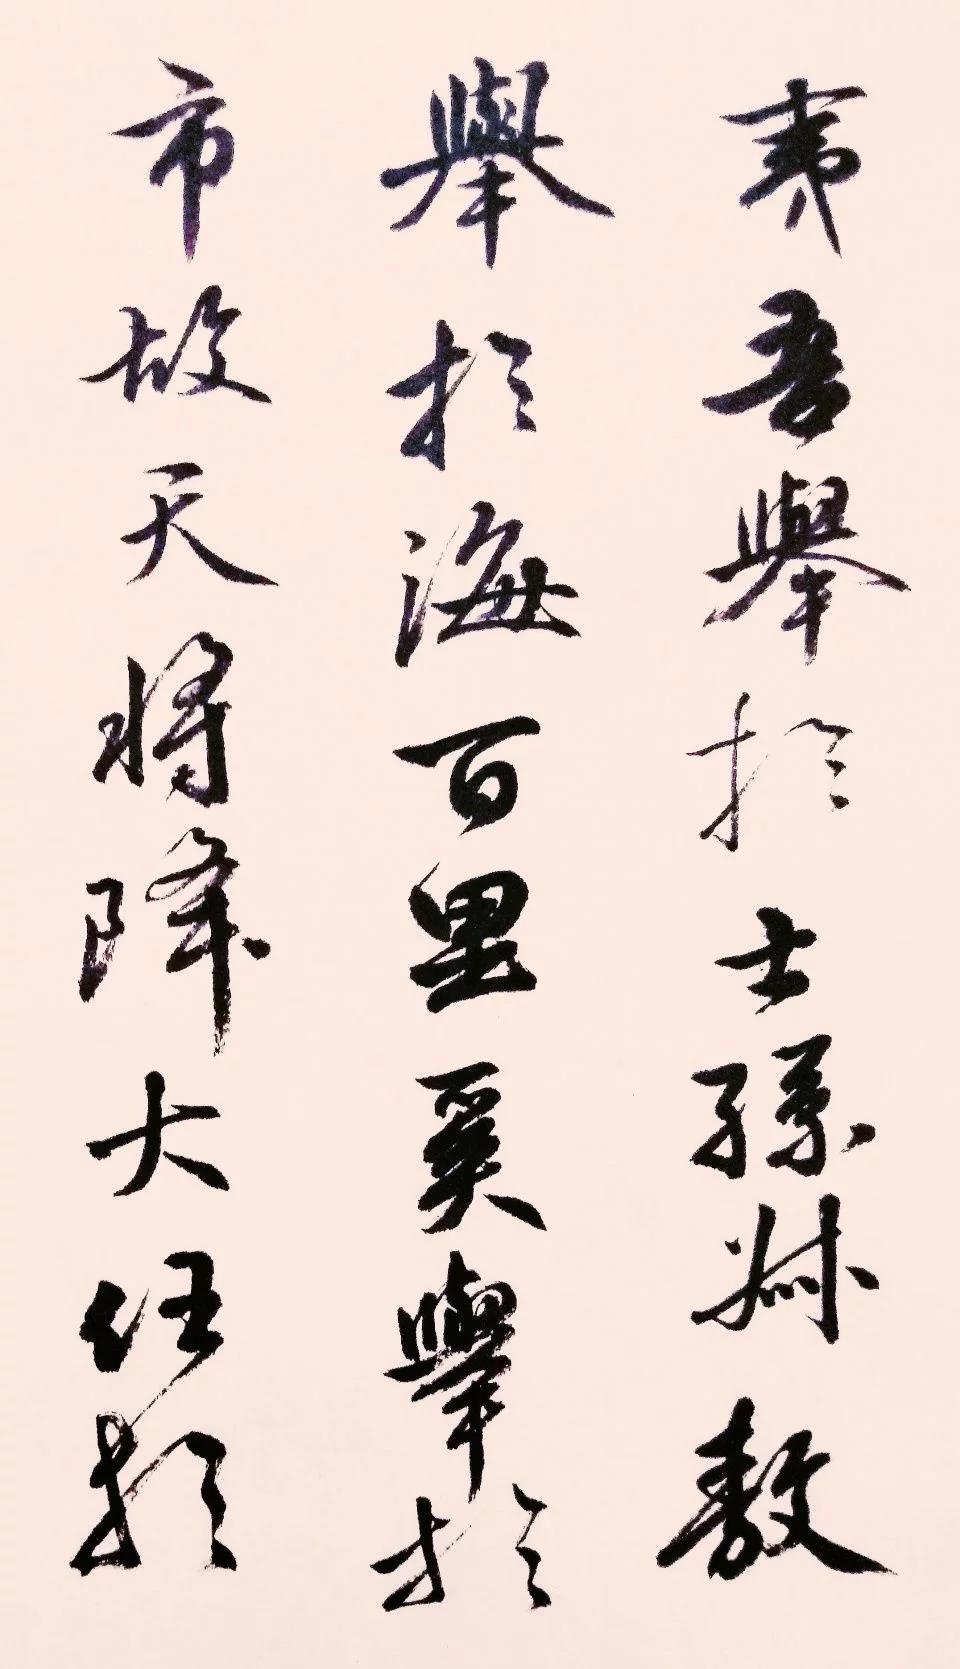 夷吾舉於士孫叔敖
舉於海百里奚舉於
市故天將降大任於